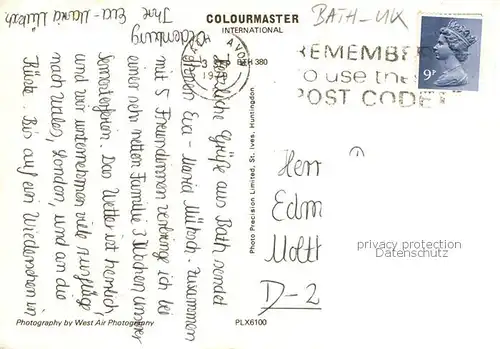 COLOURMASTER
INTERNATIONAL
BATH - UK
AVON
BTH 380
REMEMBER
to use the
POST CODE
9P
Herzliche Grüße aus Bath sendet
Ihnen Eva-Maria Zusammen
mit 5 Freundinnen verbringe ich bei
einer sehr netten Familie 3 Wochen unserer
Semesterferien. Das Wetter ist herrlich,
und wir unternehmen viele Ausflüge
nach Wales, London, und an die
Küste. Bis auf ein Wiedersehen in
Oldenburg
Ihre Eva-Maria
Photo Precision Limited, St. Ives, Huntingdon
Herr
Edm
D-2
privacy protection
Datenschutz
Photography by West Air Photography
PLX6100